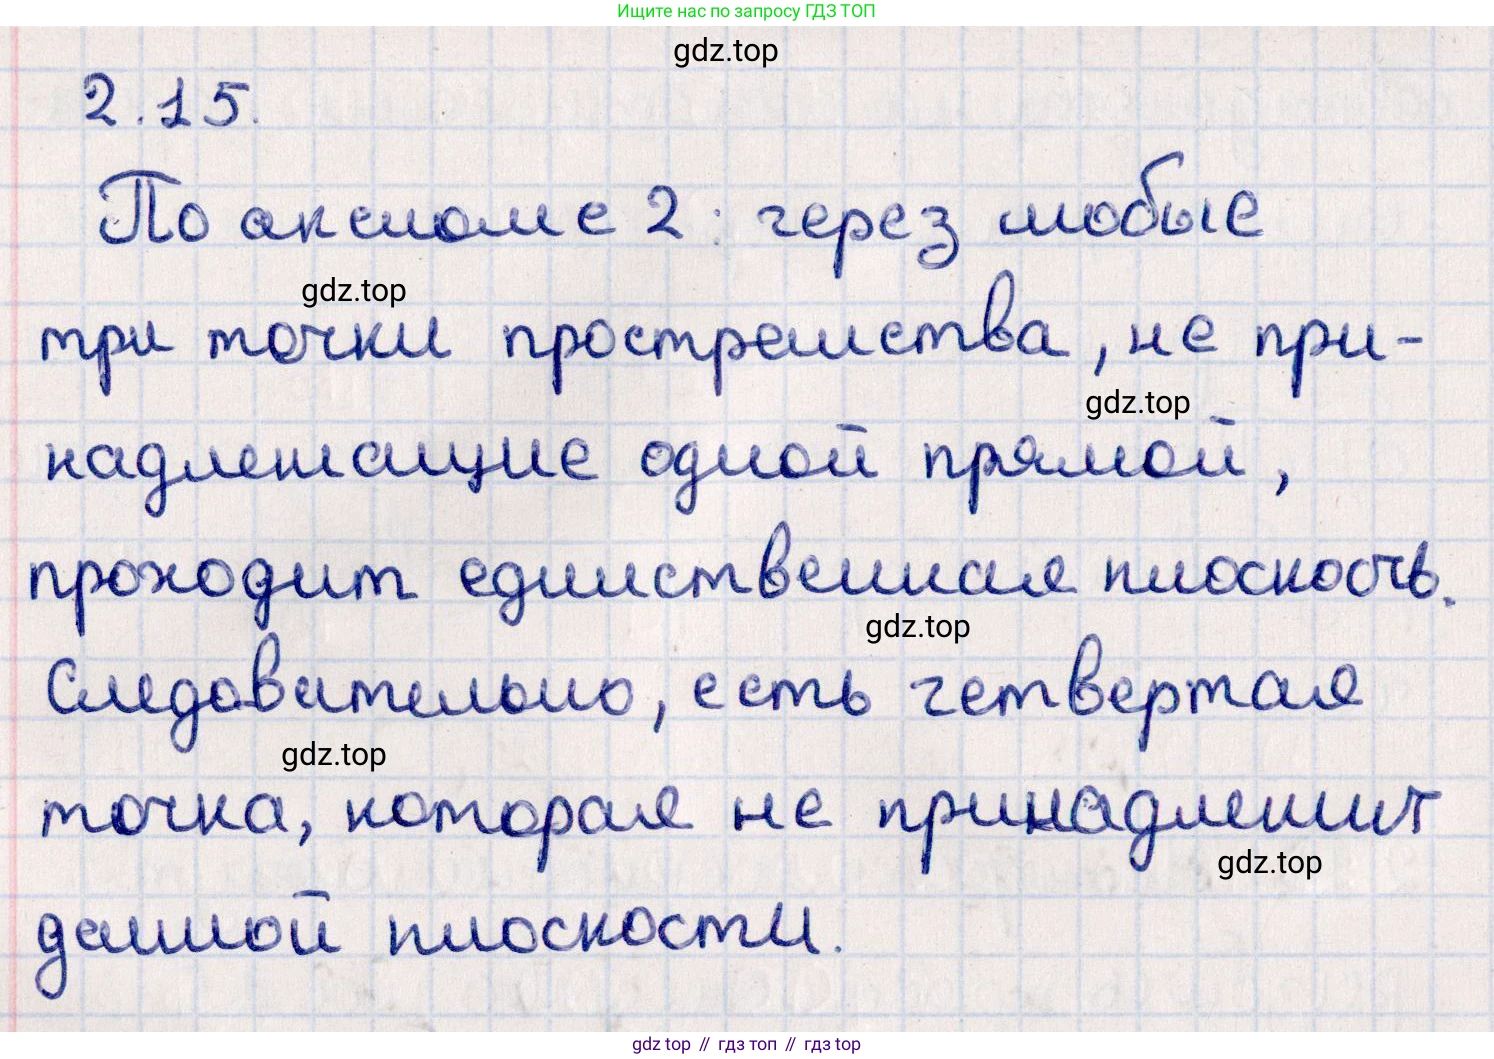 Ищите нас по запросу ГДЗ ТОП
gdz.top
2.15.
По аксиоме 2: через любые
gdz.top
три точки пространства, не при-
gdz.top
надлежащие одной прямой,
проходит единственная плоскость.
gdz.top
Следовательно, есть четвертая
gdz.top
точка, которая не принадлежит
gdz.top
данной плоскости.
gdz top // гдз топ // гдз top